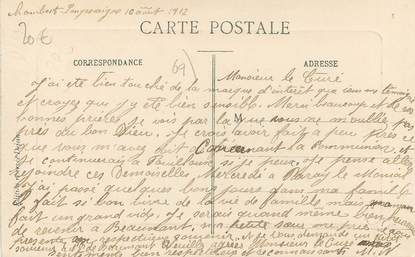 10 août 1912
20€
CARTE POSTALE
69)
CORRESPONDANCE
ADRESSE
Monsieur le Curé
J'ai été bien touché de la marque d'intérêt que vous me témoignez
et croyez que j'y ai été bien sensible. Merci beaucoup et de vos
bonnes prières. Je vois par là que vous ne m'oubliez pas
près du bon Dieu. Je crois avoir fait à peu près ce
que vous m'avez dit concernant la communion et
je continuerais à si je peux. Je pense aller
rejoindre ces Demoiselles Mercredi à Paray le Monial
J'ai passé quelques bons jours dans ma famille
il fait si bon vivre de la vie de famille mais maman
fait un grand vide. Je serais quand même bien heureuse
de revenir à Beaumont, ma petite sœur se à
présenter respectueux souvenir et je vous demande un petit
souvenir à Veuillez agréer Monsieur le Curé mes
sentiments bien respectueux et reconnaissants